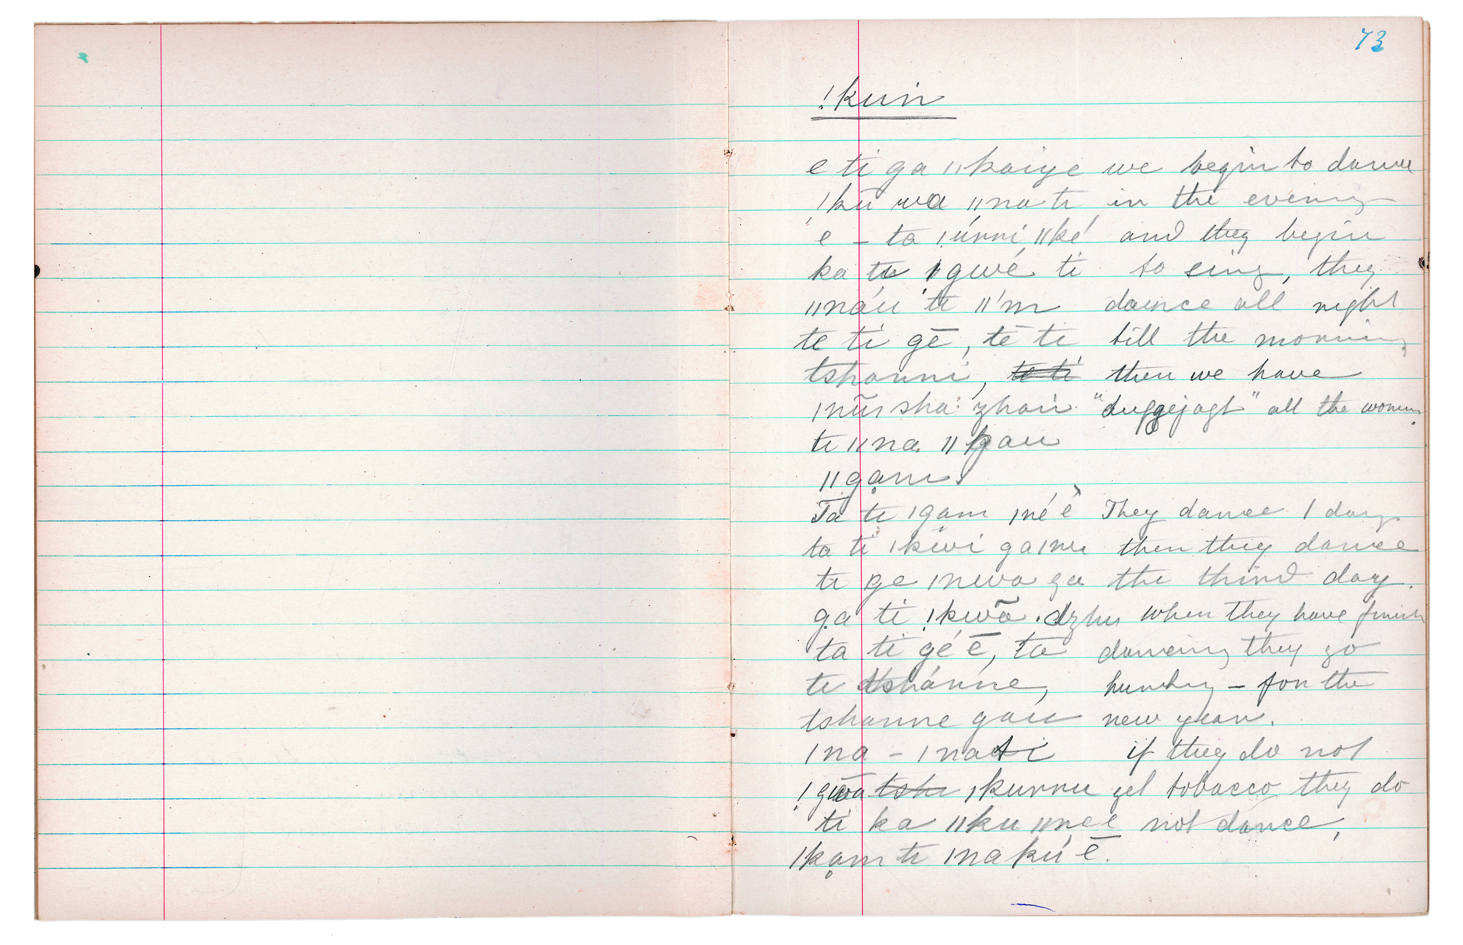 73
!kun
e ti ga ǁkaiye we begin to dance
ǀkū wa ǁna ti in the evening
e – ta ǀúrri ǁké and they begin
ka tu ǀgwé ti to sing, they
ǁnáu ti ǁ'm dance all night
te ti gē, tē ti till the morning
tshanni, te ti then we have
ǀnūi sha zhaù "duggejagt" all the women
ti ǁna ǁkau
ǁgam.
Ta ti ǀgam ǀné è They dance 1 day
ta ti ǀkwi gaǀnu then they dance
ti ge ǀnwa ga the third day.
ga ti !kwã. dzhu when they have finish
ta ti gé ē, ta dancing they go
ti tshánne, hunting – for the
tshanne gau new year.
ǀna – ǀnati if they do not
!gwa tshi ǀkurru get tobacco they do
ti ka ǁku ǁnee not dance,
ǀkam ti ǀna kú ē.